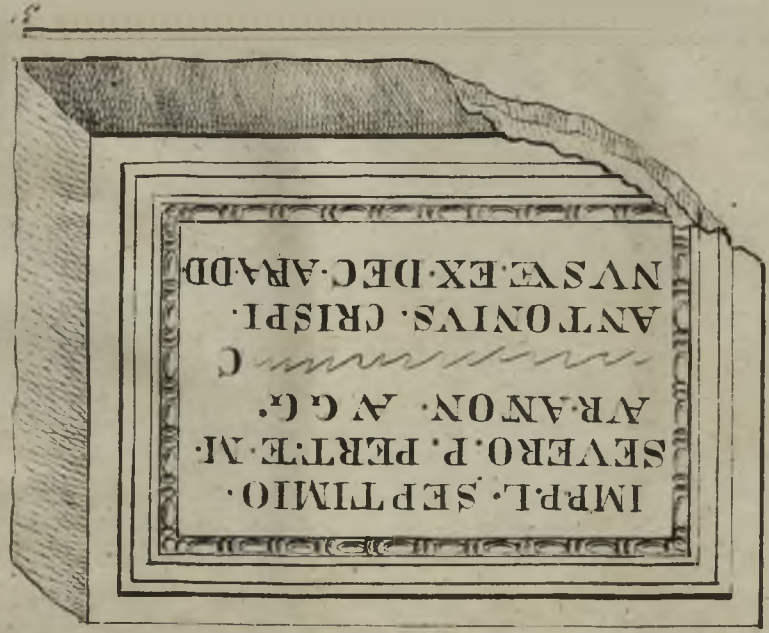 IMPP.L. SEPTIMIO.
SEVERO. P. PERT.E.M.
AVR.ANTON. AVGG.
C
ANTONIVS. CRISPI.
NVS.VE.EX.DEC.ARA.DD.